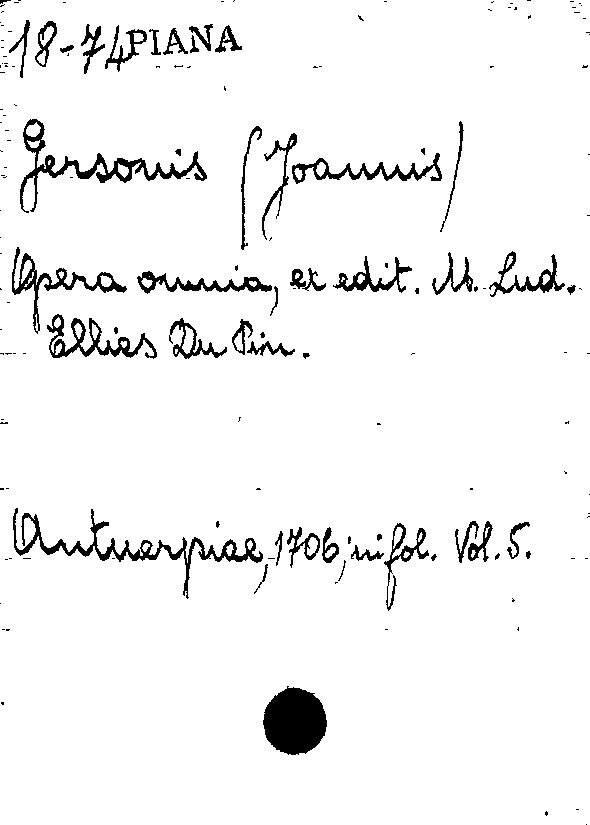 18-74 PIANA
Gersonis (Joannis)
Opera omnia, ex edit. M. Lud.
Ellies Du Pin.
Antuerpiae, 1706, in fol. Vol. 5.